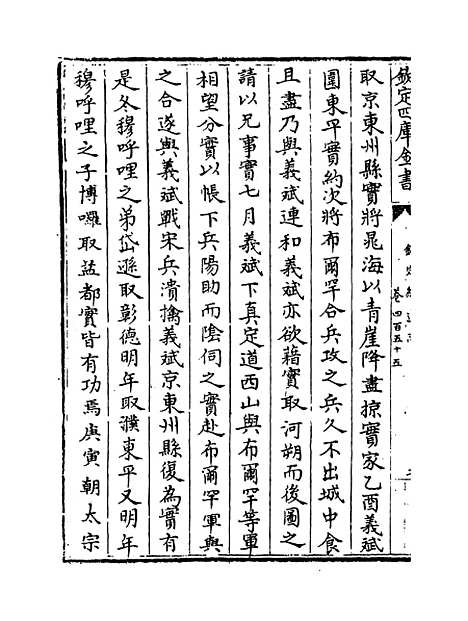 欽定四庫全書
卷四百五十五
取京東州縣實將晁海以青崖降盡掠實家乙酉義斌
圍東平實約次將布爾罕合兵攻之兵久不出城中食
且盡乃與義斌連和義斌亦欲藉實取河朔而後圖之
請以兄事實七月義斌下真定道西山與布爾罕等軍
相望分實以帳下兵陽助而陰伺之實赴布爾罕軍與
之合遂與義斌戰宋兵潰擒義斌京東州縣復為實有
是冬穆呼哩之弟岱遜取彰德明年取濮東平又明年
穆呼哩之子博囉取益都實皆有功焉庚寅朝太宗